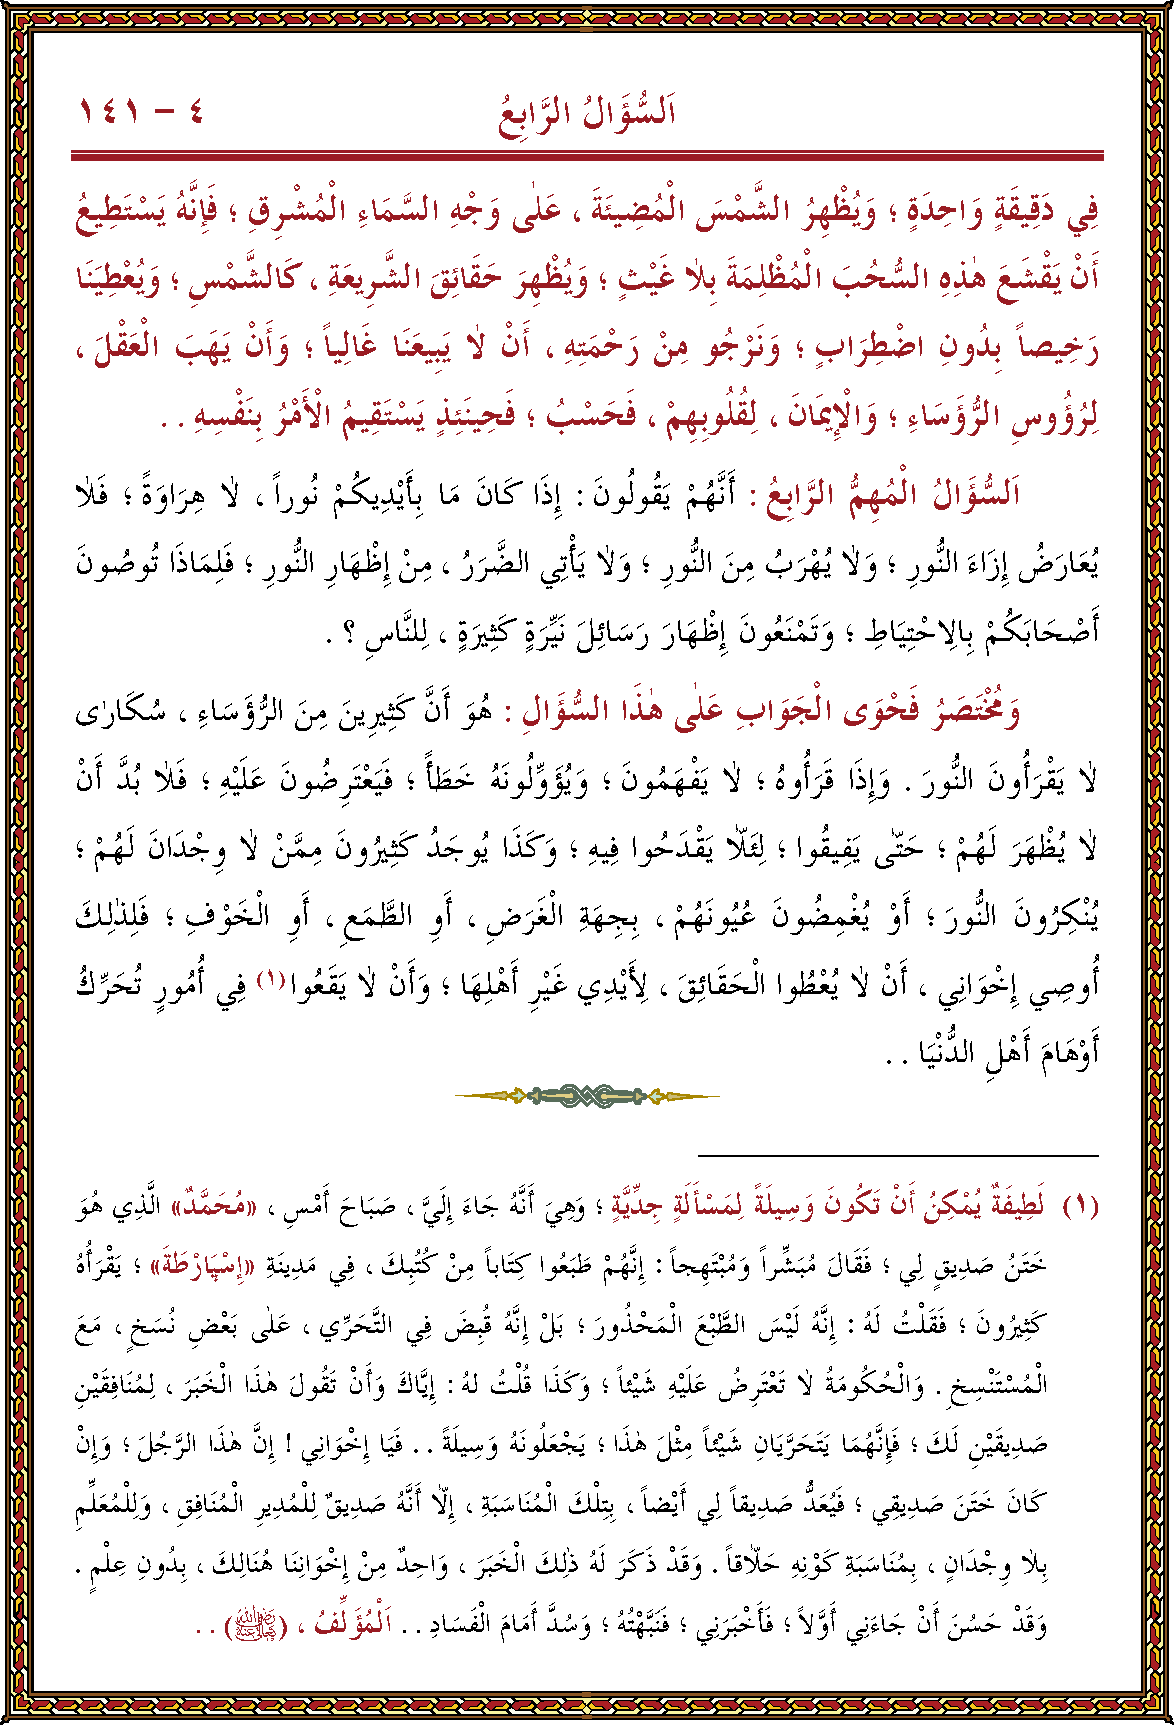 اَلسُّؤَالُ الرَّابِعُ ٤ - ١٤١
فِي دَقِيقَةٍ وَاحِدَةٍ ؛ وَيُظْهِرُ الشَّمْسَ الْمُضِيئَةَ ، عَلٰى وَجْهِ السَّمَاءِ الْمُشْرِقِ ؛ فَإِنَّهُ يَسْتَطِيعُ
أَنْ يَقْشَعَ هٰذِهِ السُّحُبَ الْمُظْلِمَةَ بِلاٰ غَيْثٍ ؛ وَيُظْهِرَ حَقَائِقَ الشَّرِيعَةِ ، كَالشَّمْسِ ؛ وَيُعْطِيَنَا
رَخِيصاً بِدُونِ اضْطِرَابٍ ؛ وَنَرْجُو مِنْ رَحْمَتِهِ ، أَنْ لاٰ يَبِيعَنَا غَالِياً ؛ وَأَنْ يَهَبَ الْعَقْلَ ،
لِرُؤُوسِ الرُّؤَسَاءِ ؛ وَالْإِيمَانَ ، لِقُلُوبِهِمْ ، فَحَسْبُ ؛ فَحِينَئِذٍ يَسْتَقِيمُ الْأَمْرُ بِنَفْسِهِ . .
اَلسُّؤَالُ الْمُهِمُّ الرَّابِعُ : أَنَّهُمْ يَقُولُونَ : إِذَا كَانَ مَا بِأَيْدِيكُمْ نُوراً ، لاٰ هِرَاوَةً ؛ فَلاٰ
يُعَارَضُ إِزَاءَ النُّورِ ؛ وَلاٰ يُهْرَبُ مِنَ النُّورِ ؛ وَلاٰ يَأْتِي الضَّرَرُ ، مِنْ إِظْهَارِ النُّورِ ؛ فَلِمَاذَا تُوصُونَ
أَصْحَابَكُمْ بِالِاحْتِيَاطِ ؛ وَتَمْنَعُونَ إِظْهَارَ رَسَائِلَ نَيِّرَةٍ كَثِيرَةٍ ، لِلنَّاسِ ؟ .
وَمُخْتَصَرُ فَحْوَى الْجَوَابِ عَلٰى هٰذَا السُّؤَالِ : هُوَ أَنَّ كَثِيرِينَ مِنَ الرُّؤَسَاءِ ، سُكَارٰى
لاٰ يَقْرَأُونَ النُّورَ . وَإِذَا قَرَأُوهُ ؛ لاٰ يَفْهَمُونَ ؛ وَيُؤَوِّلُونَهُ خَطَأً ؛ فَيَعْتَرِضُونَ عَلَيْهِ ؛ فَلاٰ بُدَّ أَنْ
لاٰ يُظْهَرَ لَهُمْ ؛ حَتّٰى يَفِيقُوا ؛ لِئَلّاٰ يَقْدَحُوا فِيهِ ؛ وَكَذَا يُوجَدُ كَثِيرُونَ مِمَّنْ لاٰ وِجْدَانَ لَهُمْ ؛
يُنْكِرُونَ النُّورَ ؛ أَوْ يُغْمِضُونَ عُيُونَهُمْ ، بِجِهَةِ الْغَرَضِ ، أَوِ الطَّمَعِ ، أَوِ الْخَوْفِ ؛ فَلِذٰلِكَ
أُوصِي إِخْوَانِي ، أَنْ لاٰ يُعْطُوا الْحَقَائِقَ ، لِأَيْدِي غَيْرِ أَهْلِهَا ؛ وَأَنْ لاٰ يَقَعُوا(١) فِي أُمُورٍ تُحَرِّكُ
أَوْهَامَ أَهْلِ الدُّنْيَا . .
(١) لَطِيفَةٌ يُمْكِنُ أَنْ تَكُونَ وَسِيلَةً لِمَسْأَلَةٍ جِدِّيَّةٍ ؛ وَهِيَ أَنَّهُ جَاءَ إِلَيَّ ، صَبَاحَ أَمْسِ ، «مُحَمَّدٌ» الَّذِي هُوَ
خَتَنُ صَدِيقٍ لِي ؛ فَقَالَ مُبَشِّراً وَمُبْتَهِجاً : إِنَّهُمْ طَبَعُوا كِتَاباً مِنْ كُتُبِكَ ، فِي مَدِينَةِ «إِسْپَارْطَةَ» ؛ يَقْرَأُهُ
كَثِيرُونَ ؛ فَقُلْتُ لَهُ : إِنَّهُ لَيْسَ الطَّبْعَ الْمَحْذُورَ ؛ بَلْ إِنَّهُ قُبِضَ فِي التَّحَرِّي ، عَلٰى بَعْضِ نُسَخٍ ، مَعَ
الْمُسْتَنْسِخِ . وَالْحُكُومَةُ لاٰ تَعْتَرِضُ عَلَيْهِ شَيْئاً ؛ وَكَذَا قُلْتُ لهُ : إِيَّاكَ وَأَنْ تَقُولَ هٰذَا الْخَبَرَ ، لِمُنَافِقَيْنِ
صَدِيقَيْنِ لَكَ ؛ فَإِنَّهُمَا يَتَحَرَّيَانِ شَيْئاً مِثْلَ هٰذَا ؛ يَجْعَلُونَهُ وَسِيلَةً . . فَيَا إِخْوَانِي ! إِنَّ هٰذَا الرَّجُلَ ؛ وَإِنْ
كَانَ خَتَنَ صَدِيقِي ؛ فَيُعَدُّ صَدِيقاً لِي أَيْضاً ، بِتِلْكَ الْمُنَاسَبَةِ ، إِلّاٰ أَنَّهُ صَدِيقٌ لِلْمُدِيرِ الْمُنَافِقِ ، وَلِلْمُعَلِّمِ
بِلاٰ وِجْدَانٍ ، بِمُنَاسَبَةِ كَوْنِهِ حَلّاٰقاً . وَقَدْ ذَكَرَ لَهُ ذٰلِكَ الْخَبَرَ ، وَاحِدٌ مِنْ إِخْوَانِنَا هُنَالِكَ ، بِدُونِ عِلْمٍ .
وَقَدْ حَسُنَ أَنْ جَاءَنِي أَوَّلاً ؛ فَأَخْبَرَنِي ؛ فَنَبَّهْتُهُ ؛ وَسُدَّ أَمَامَ الْفَسَادِ . . اَلْمُؤَلِّفُ ، (رَضِيَ اللهُ تَعَالَى عَنْهُ) . .